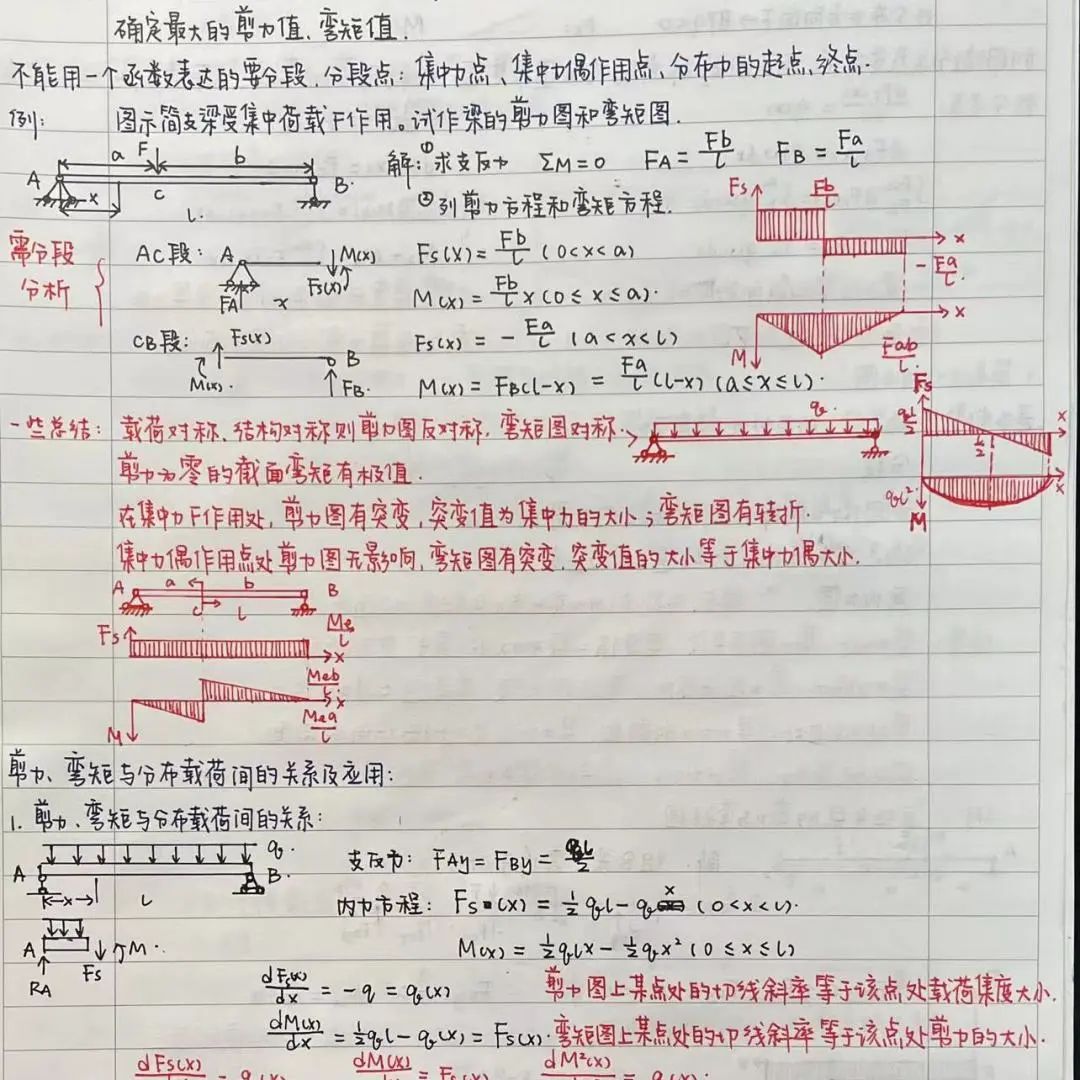 确定最大的剪力值、弯矩值.
不能用一个函数表达的要分段. 分段点: 集中力点、集中力偶作用点、分布力的起点、终点.
例: 图示简支梁受集中荷载F作用。试作梁的剪力图和弯矩图.
a F b
A B.
x c
l.
解: ①求支反力 ΣM=0 FA = Fb/l FB = Fa/l
②列剪力方程和弯矩方程.
Fs Fb/l x
- Fa/l.
x
M Fab/l.
需分段
分析
AC段: A M(x) Fs(x) FA x
Fs(x) = Fb/l (0<x<a)
M(x) = Fb/l x (0≤x≤a).
CB段: Fs(x) B M(x). FB.
Fs(x) = - Fa/l (a<x<l)
M(x) = FB(l-x) = Fa/l (l-x) (a≤x≤l).
一些总结: 载荷对称、结构对称则剪力图反对称, 弯矩图对称.
q.
Fs ql/2 l/2 x
ql² x
M
剪力为零的截面弯矩有极值.
在集中力F作用处, 剪力图有突变, 突变值为集中力的大小; 弯矩图有转折.
集中力偶作用点处剪力图无影响, 弯矩图有突变, 突变值的大小等于集中力偶大小.
A a b B
c l
Fs Me/l x
Meb/l x
M Mea/l
剪力、弯矩与分布载荷间的关系及应用:
1. 剪力、弯矩与分布载荷间的关系:
q.
A B.
x l
支反力: FAy = FBy = ql/2
内力方程: Fs(x) = ½ql - qx (0<x<l).
A M.
RA Fs
M(x) = ½qlx - ½qx² (0≤x≤l)
dFs(x)/dx = -q = q(x) 剪力图上某点处的切线斜率等于该点处载荷集度大小.
dM(x)/dx = ½ql - q(x) = Fs(x). 弯矩图上某点处的切线斜率等于该点处剪力的大小.
dFs(x) = q(x) dM(x) = Fs(x) dM²(x) = q(x).